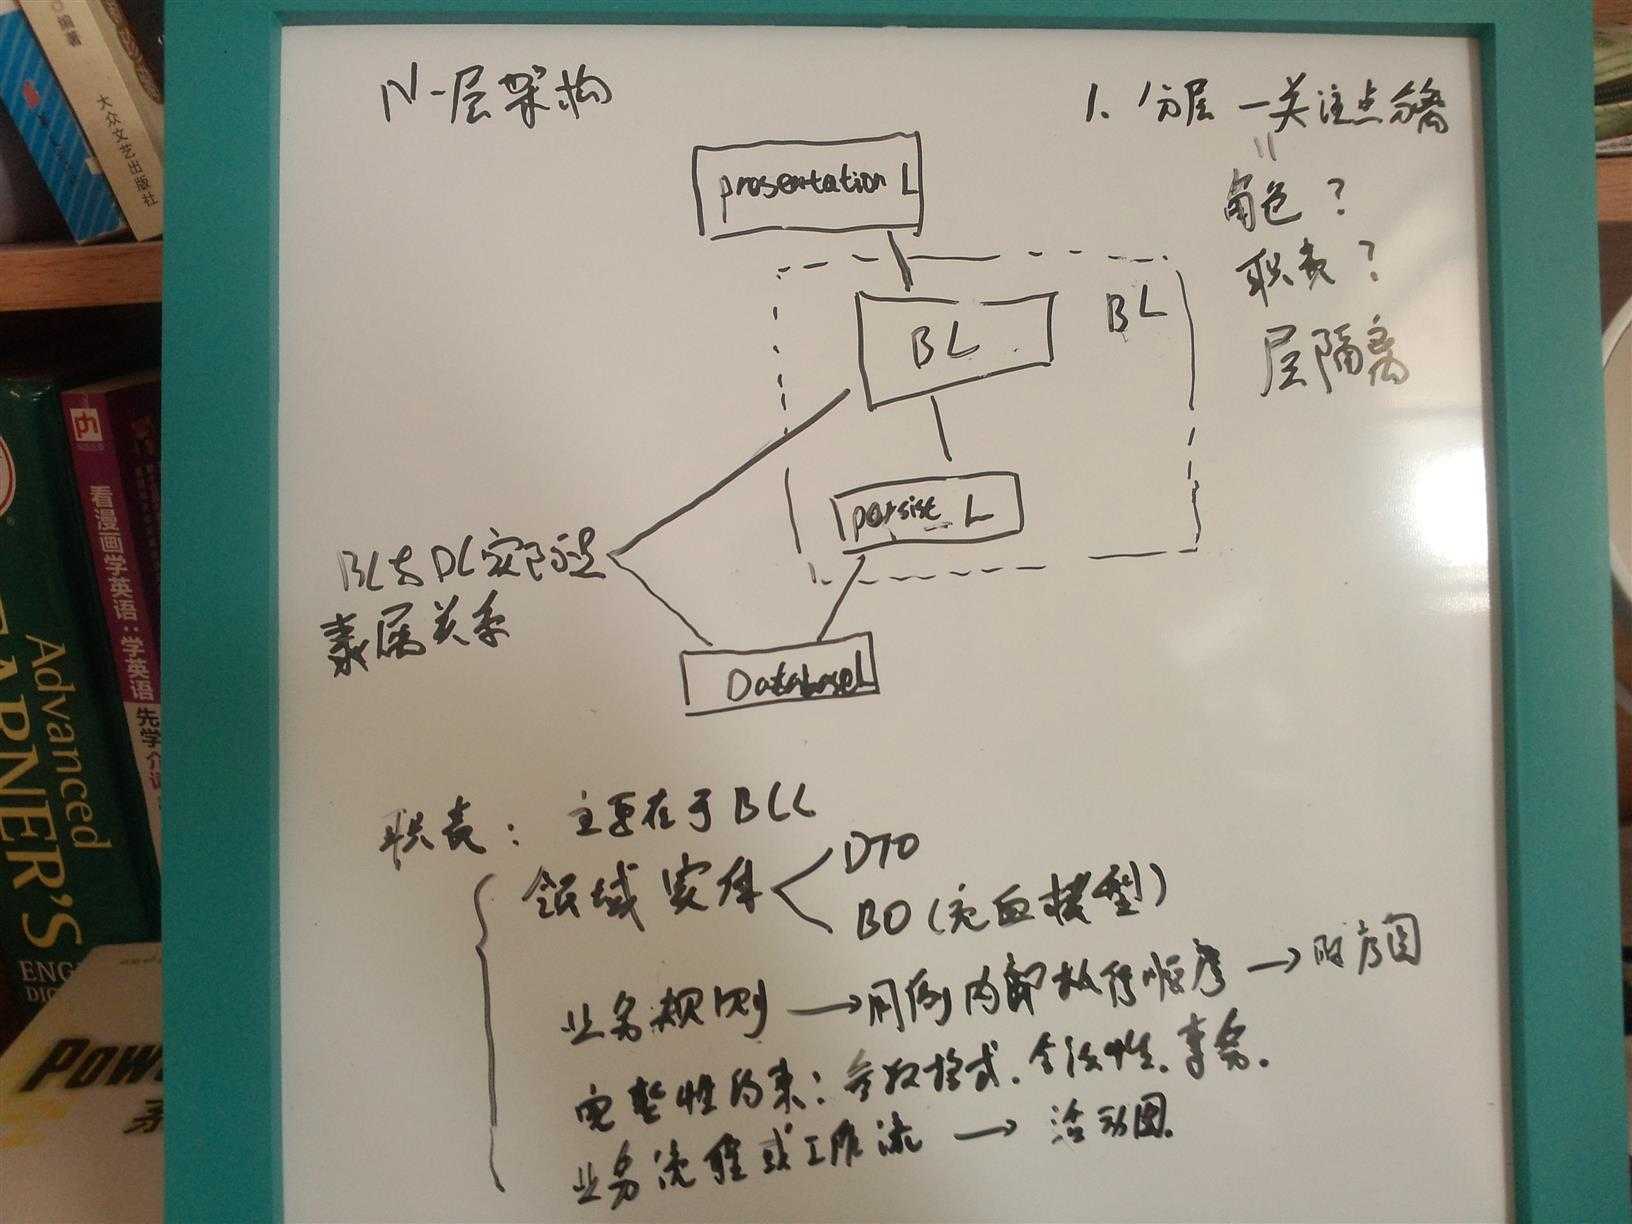 N-层架构
1. 分层 — 关注点分离
角色？
职责？
层隔离
presentation L
BL
BL
persist L
DatabaseL
BL与DL实际是
隶属关系
职责： 主要在于BLL
领域实体
DTO
BO（充血模型）
业务规则 → 用例内部执行顺序 → 时序图
完整性约束：参数格式．合法性．事务．
业务流程或工作流 → 活动图．
编著
大众文艺出版社
看漫画学英语：学英语 先学介词
Advanced
ARNER'S
ENG
DIC
Pow